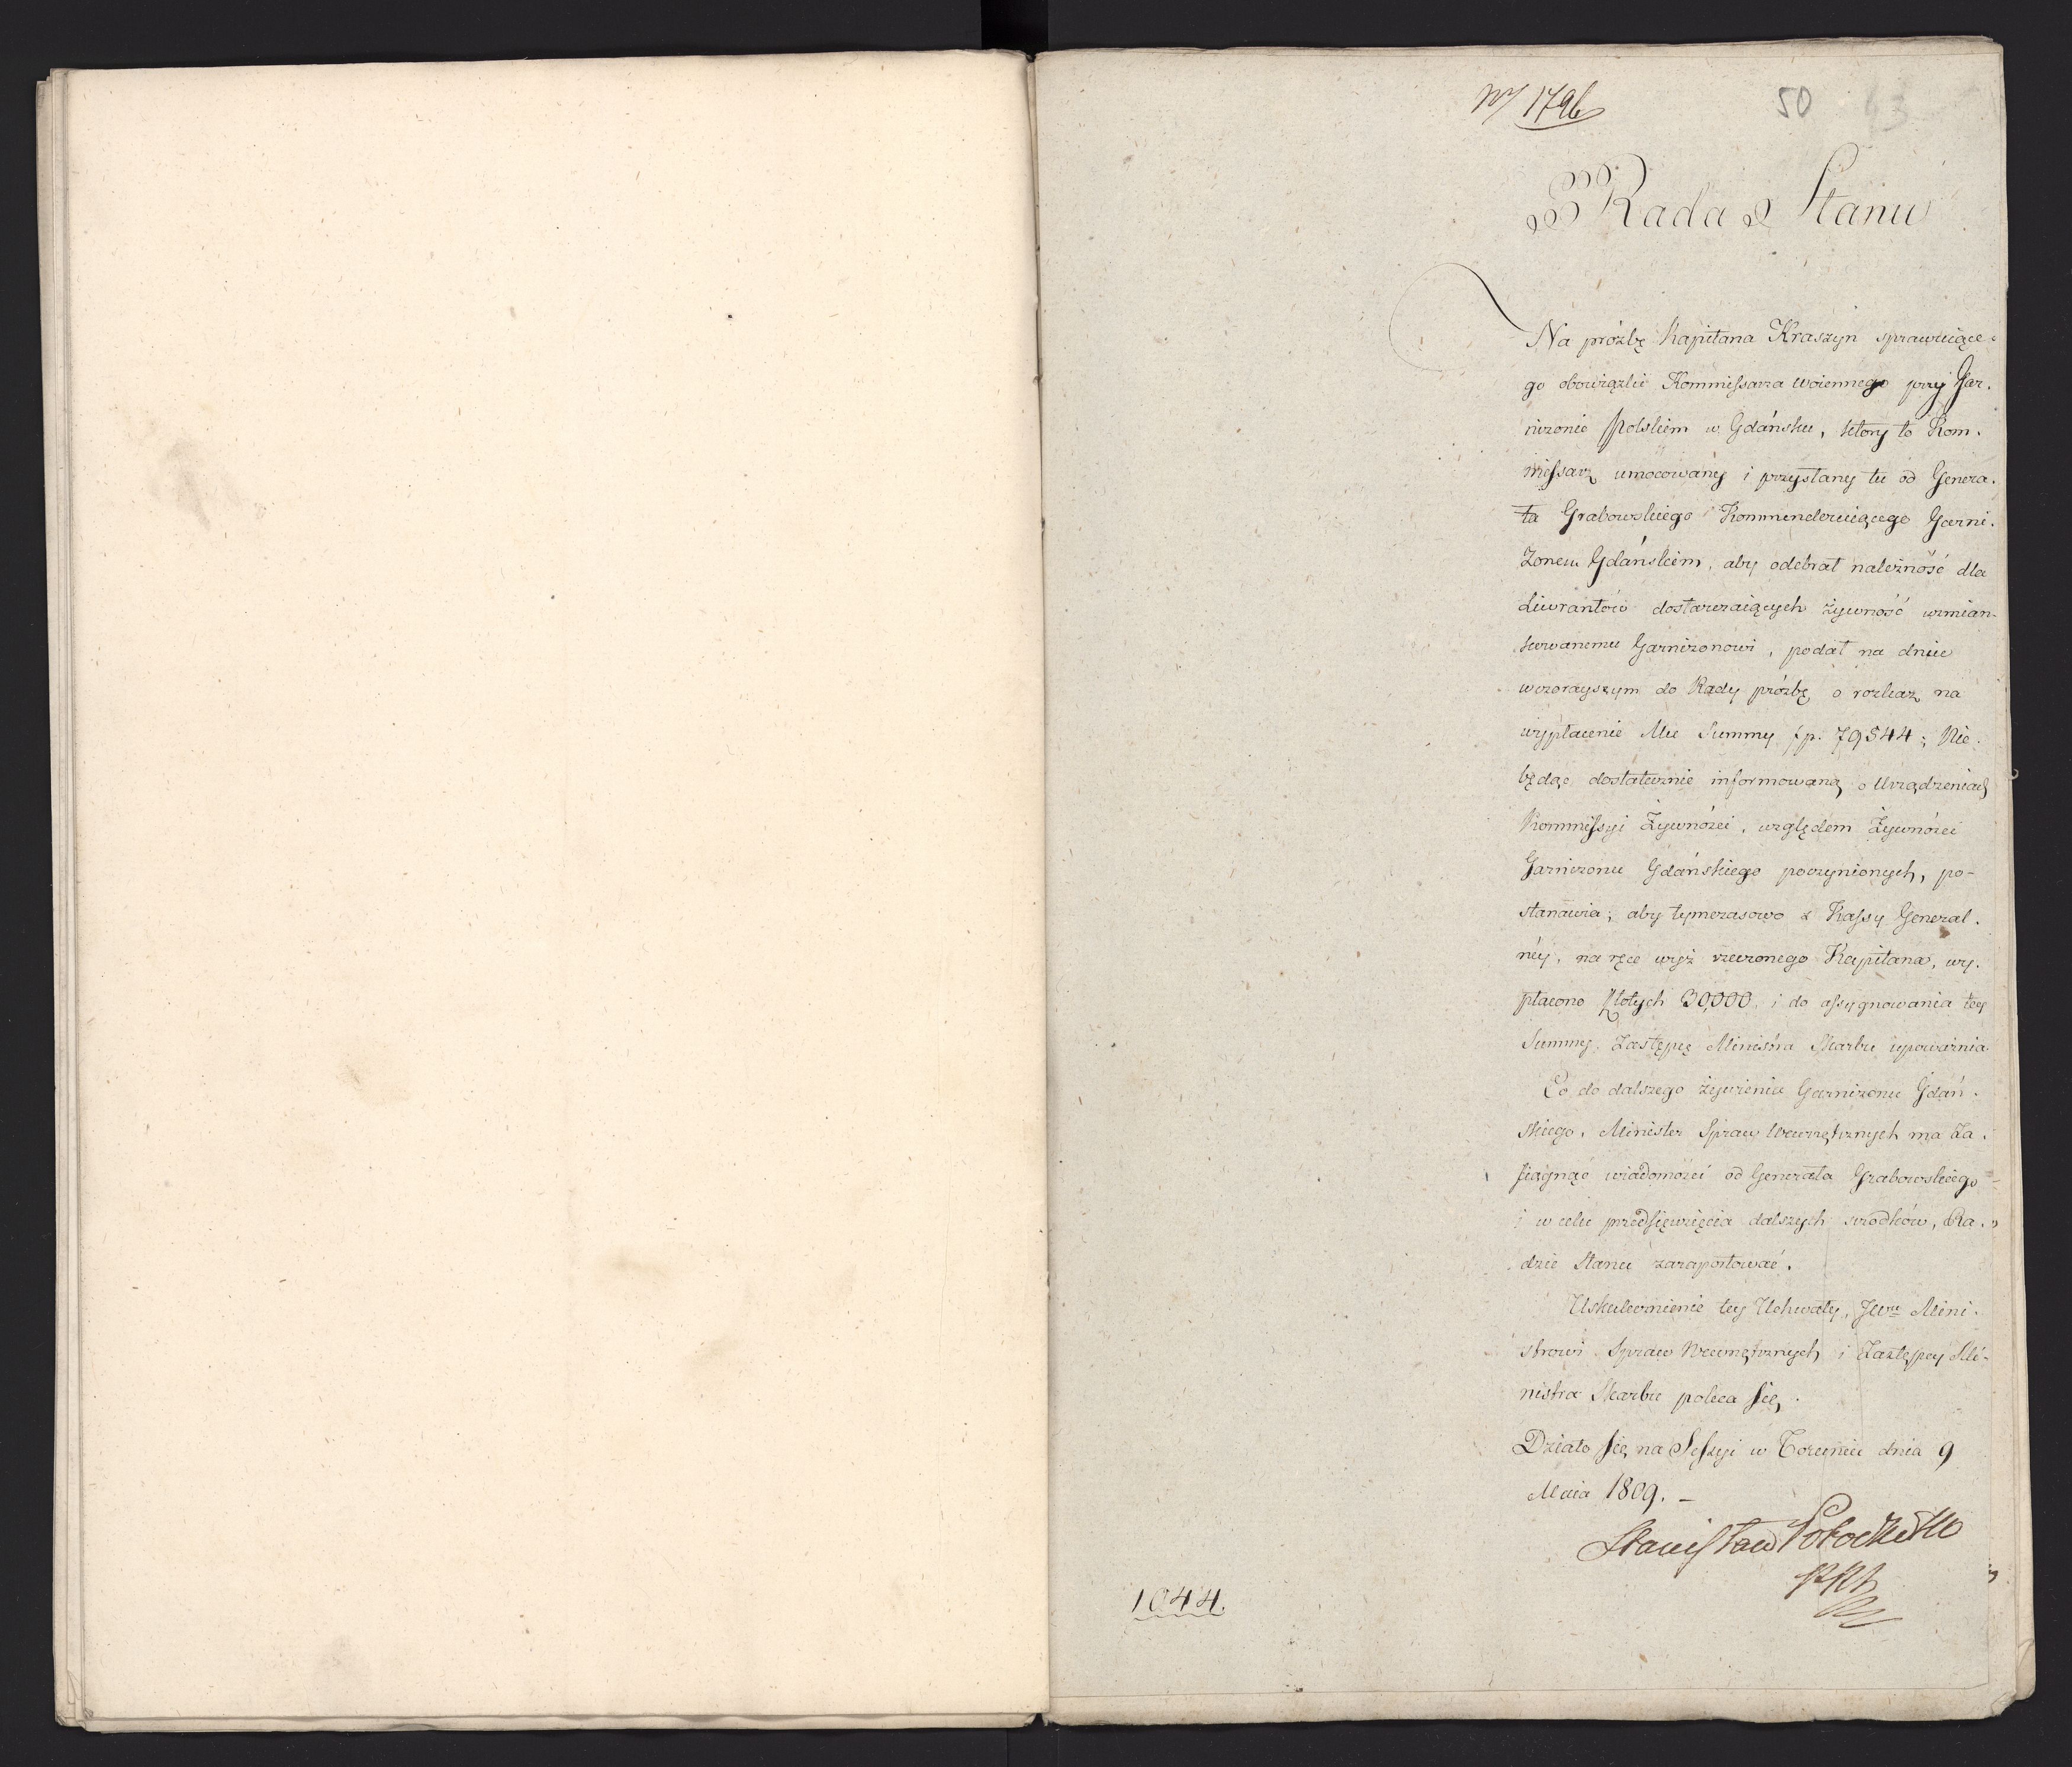 Nr 1796
50 43
Rada Stanu
Na prózbę Kapitana Kraszyn sprawuiące-
go obowiązki Kommissarza woiennego przy Gar-
nizonie Polskim w Gdańsku, ktory to Kom-
missarz umocowany i przysłany tu od Genera-
ła Grabowskiego Kommenderuiącego Garni-
zonem Gdańskim, aby odebrał należność dla
Liwrantów dostarczaiących żywność wzmian-
kowanemu Garnizonowi, podał na dniu
wczorayszym do Rady prózbę o rozkaz na
wypłacenie Mu Summy fp. 79544; Nie
będąc dostatecznie informowaną o Urządzeniach
Kommissyi Żywności, względem Żywności
Garnizonu Gdańskiego poczynionych, po-
stanawia; aby tymczasowo z Kassy General-
néy, na ręce wyż rzeczonego Kapitana, wy-
płacono Złotych 30,000 i do assygnowania tey
Summy, Zastępcę Ministra Skarbu upoważnia
Co do dalszego żywienia Garnizonu Gdań-
skiego, Minister Spraw Wewnętrznych ma Za-
siągnąć wiadomości od Generała Grabowskiego
i w celu przedsięwzięcia dalszych srodków, Ra-
dzie Stanu zaraportować.
Uskutecznienie tey Uchwały, JWmu Mini-
strowi Spraw Wewnętrznych i Zastępcy Mi-
nistra Skarbu poleca się.
Działo się na Sessyi w Toruniu dnia 9
Maia 1809. -
Stanisław Potocki
1044.